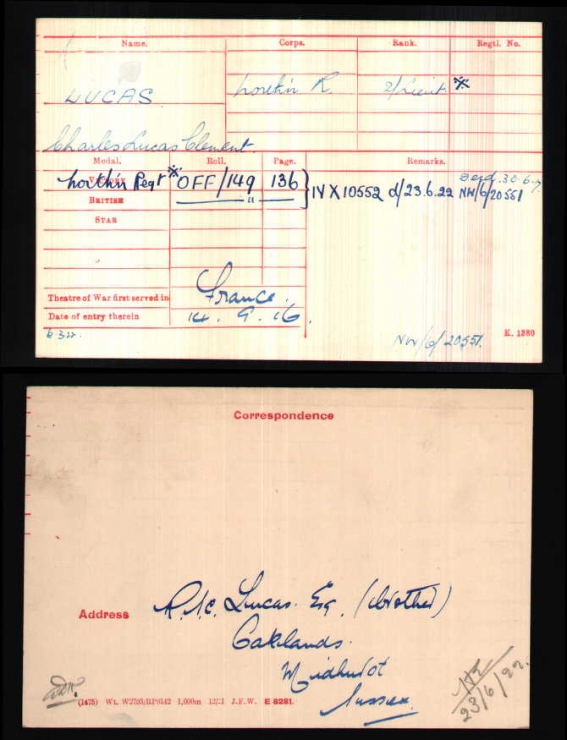 Name. Corps. Rank. Regtl. No.
LUCAS North'n R. 2/Lieut *
Charles Lucas Clement.
Medal. Roll. Page. Remarks.
VICTORY North'n Regt * OFF/149 136 } IV X 10552 d/23.6.22 NW/6/20551
BRITISH " "
STAR
Theatre of War first served in France.
Date of entry therein 14.9.16.
NW/6/20551. K. 1380
Correspondence
Address Lucas. Esq. (brother)
Oaklands.
Midhurst
Sussex.
23/6/22.
1,000m J.F.W. E 8281.